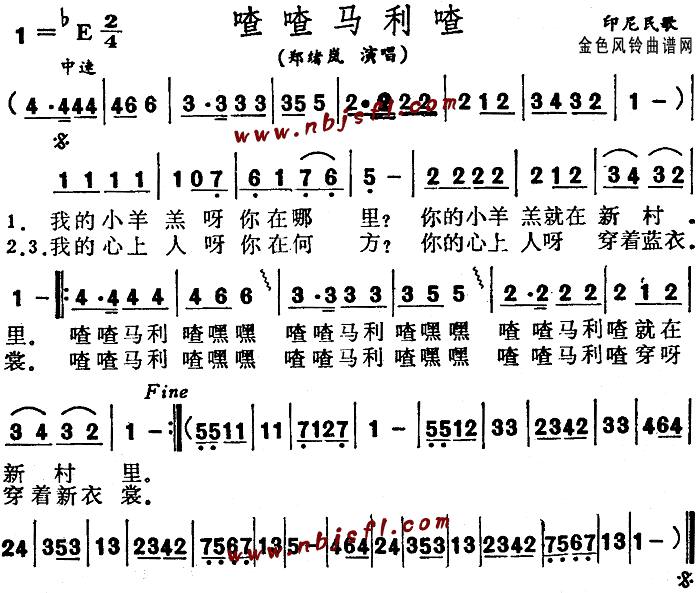 喳喳马利喳
1=♭E 2/4
印尼民歌
金色风铃曲谱网
中速
(郑绪岚 演唱)
( 4·444 | 466 | 3·333 | 355 | 2·222 | 212 | 3432 | 1 - ) |
www.nbjsfl.com
1 1 1 1 | 1 0 7 | 6 1 7 6 | 5 - | 2 2 2 2 | 2 1 2 | 3 4 3 2 |
1. 我的小羊 羔 呀 你在哪 里? 你的小羊 羔就在 新 村 .
2.3.我的心上 人 呀 你在何 方? 你的心上 人呀 穿着蓝衣.
1 - |: 4·4 4 4 | 4 6 6 | 3·3 3 3 | 3 5 5 | 2·2 2 2 | 2 1 2 |
里. 喳喳马利 喳嘿嘿 喳喳马利 喳嘿嘿 喳 喳马利喳就在
裳. 喳喳马利 喳嘿嘿 喳喳马利 喳嘿嘿 喳 喳马利喳穿呀
Fine
3 4 3 2 | 1 - :| ( 5511 | 11 | 7127 | 1 - | 5512 | 33 | 2342 | 33 | 464 |
新 村 里.
穿着新衣 裳.
24 | 353 | 13 | 2342 | 7567 | 13 | 5 - | 464 | 24 | 353 | 13 | 2342 | 7567 | 13 | 1 - ) ‖
www.nbjsfl.com